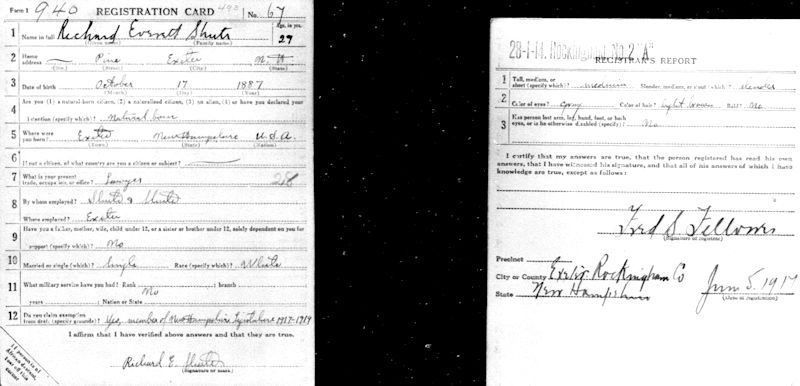 Form 1 940 REGISTRATION CARD 493 No. 67
1 Name in full Richard Everett Shute Age, in yrs. 29
(Given name) (Family name)
2 Home address Pine Exeter N. H.
(No.) (Street) (City) (State)
3 Date of birth October 17 1887
(Month) (Day) (Year)
4 Are you (1) a natural-born citizen, (2) a naturalized citizen, (3) an alien, (4) or have you declared your
intention (specify which)? Natural born
5 Where were you born? Exeter New Hampshire U.S.A.
(Town) (State) (Nation)
6 If not a citizen, of what country are you a citizen or subject?
7 What is your present trade, occupation, or office? Lawyer 28
8 By whom employed? Shute & Shute
Where employed? Exeter
9 Have you a father, mother, wife, child under 12, or a sister or brother under 12, solely dependent on you for
support (specify which)? No
10 Married or single (which)? Single Race (specify which)? White
11 What military service have you had? Rank No ; branch
years ; Nation or State
12 Do you claim exemption from draft (specify grounds)? Yes, member of New Hampshire Legislature 1917-1919
I affirm that I have verified above answers and that they are true.
Richard E. Shute
(Signature or mark)
If person is of African descent, tear off this corner
28-1-14. Rockingham No. 2 "A"
REGISTRAR'S REPORT
1 Tall, medium, or short (specify which)? medium Slender, medium, or stout (which)? slender
2 Color of eyes? Gray Color of hair? Light brown Bald? No
3 Has person lost arm, leg, hand, foot, or both eyes, or is he otherwise disabled (specify)? No
I certify that my answers are true, that the person registered has read his own
answers, that I have witnessed his signature, and that all of his answers of which I have
knowledge are true, except as follows:
Fred S. Fellows
(Signature of registrar)
Precinct
City or County Exeter Rockingham Co
State New Hampshire June 5, 1917
(Date of registration)